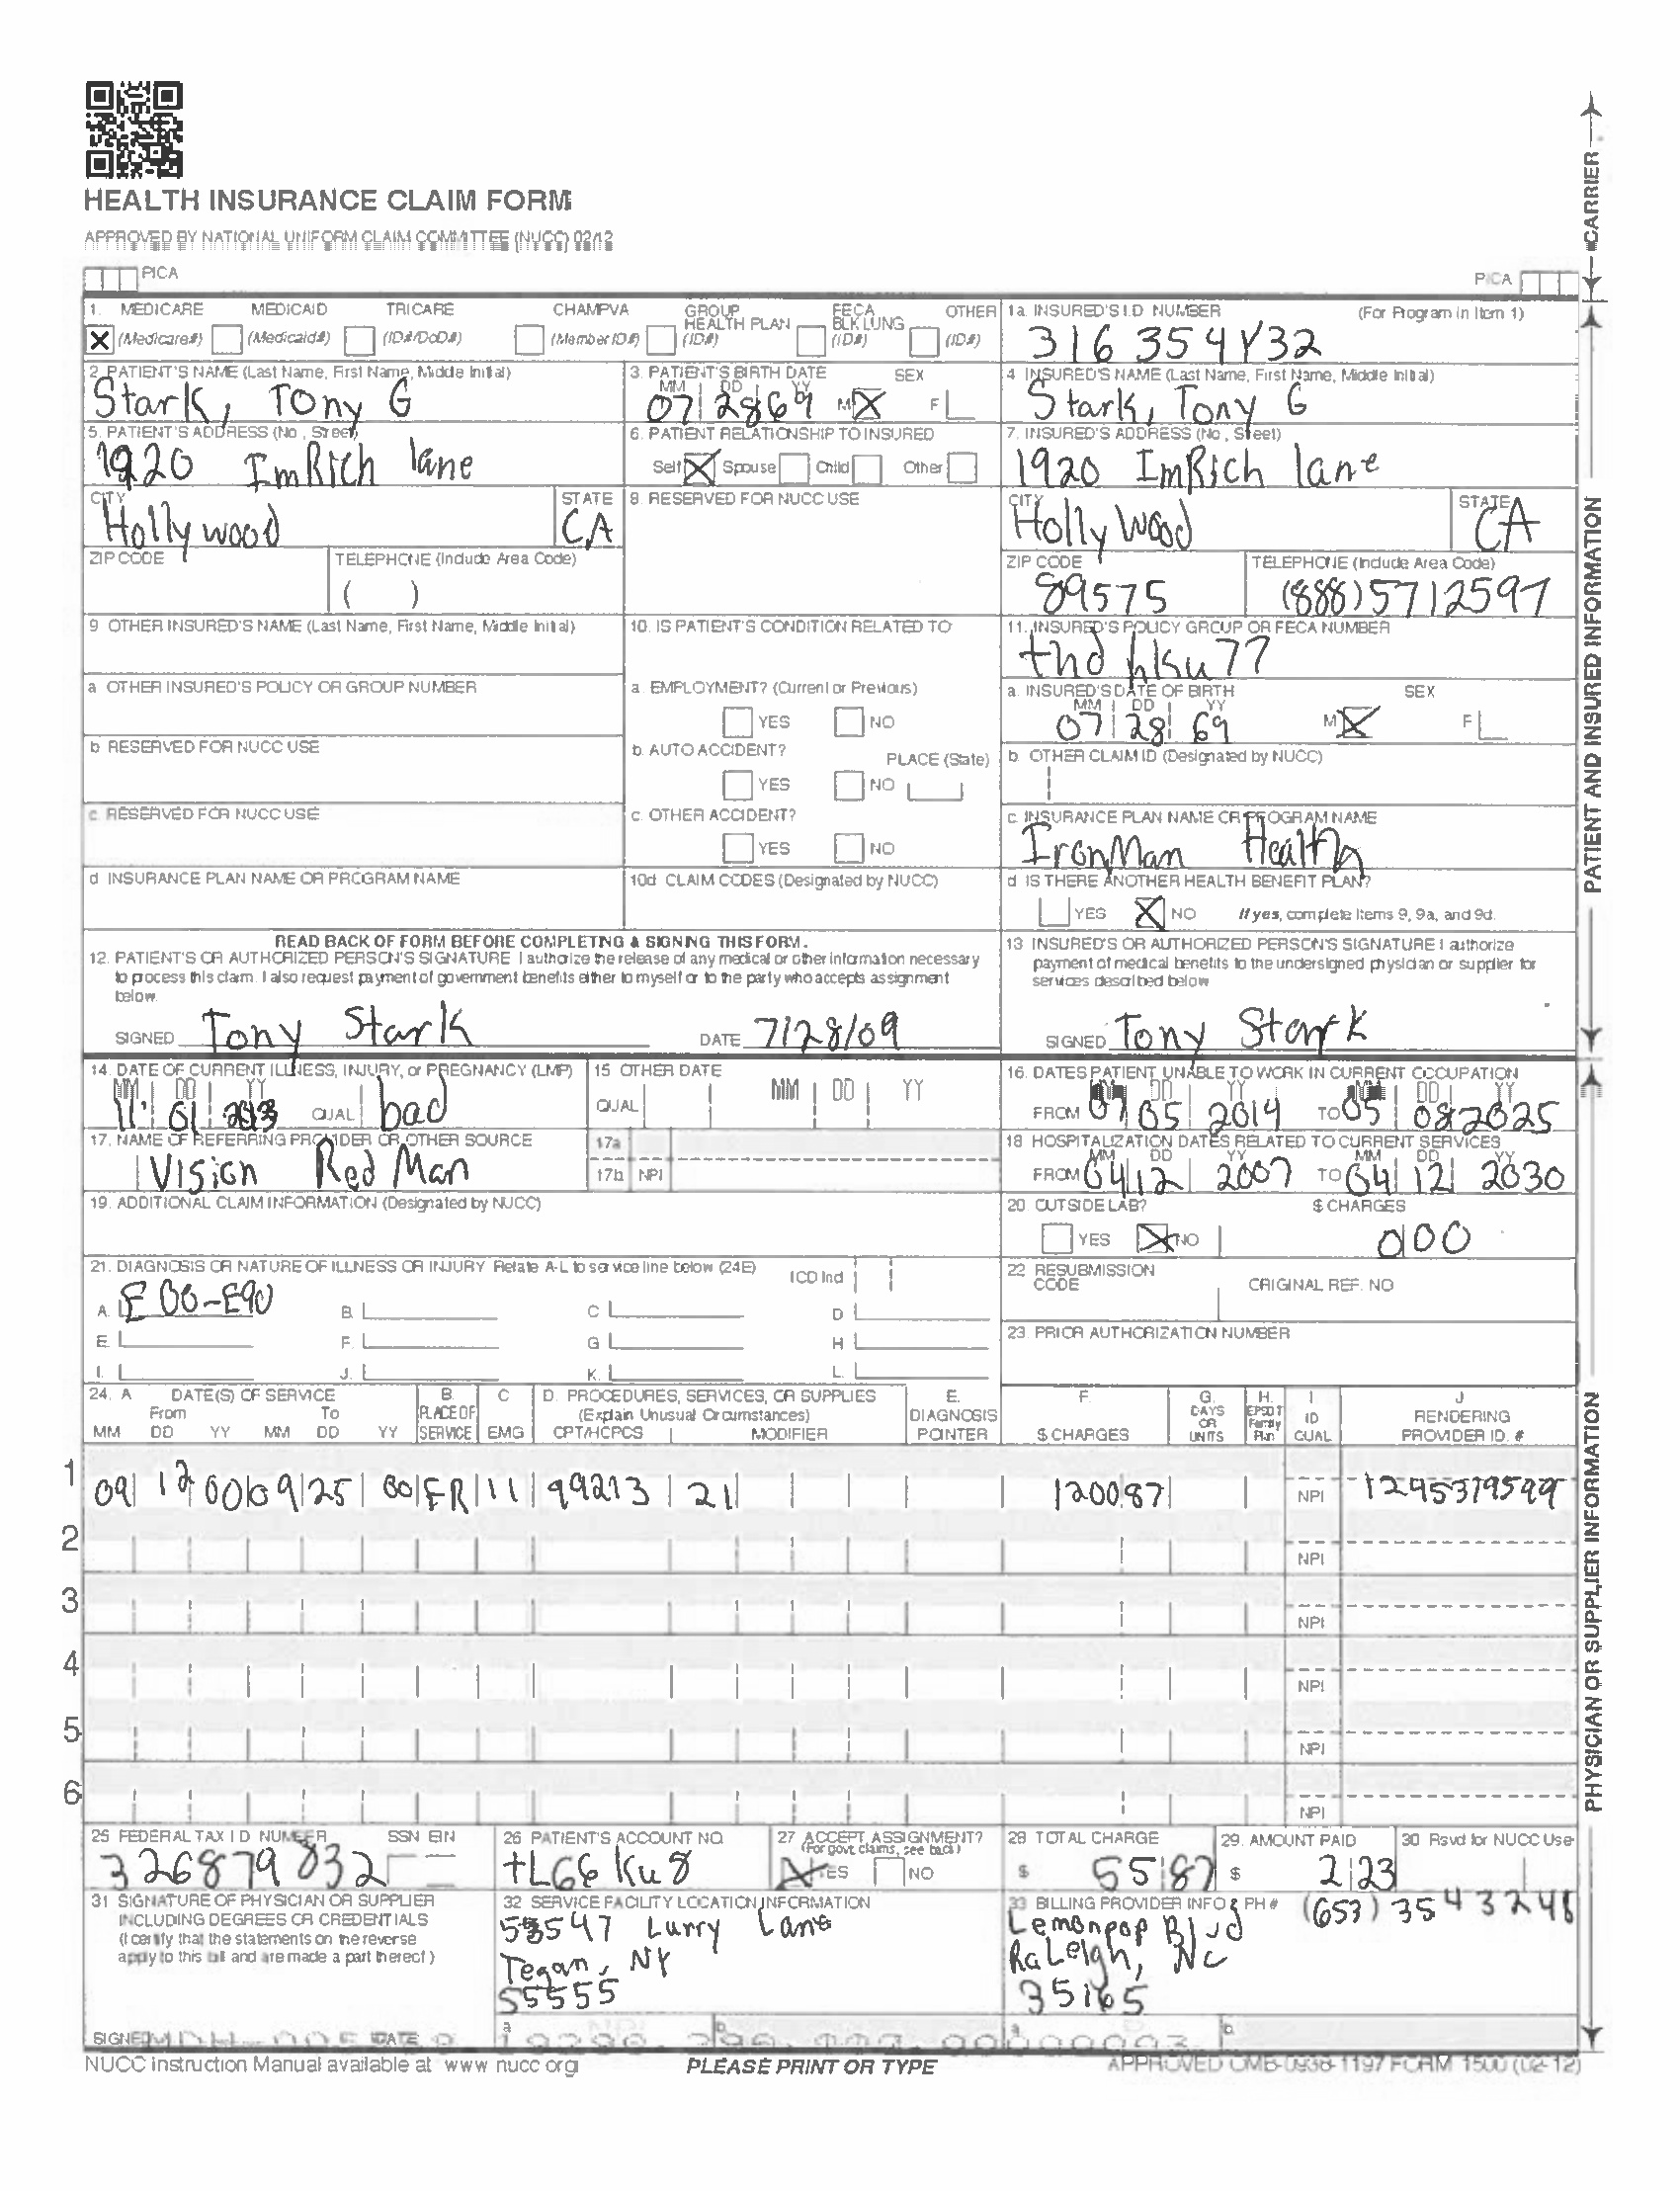 HEALTH INSURANCE CLAIM FORM
APPROVED BY NATIONAL UNIFORM CLAIM COMMITTEE (NUCC) 02/12
PICA
PICA
CARRIER
1. MEDICARE MEDICAID TRICARE CHAMPVA GROUP HEALTH PLAN FECA BLK LUNG OTHER
(Medicare#) (Medicaid#) (ID#/DoD#) (Member ID#) (ID#) (ID#) (ID#)
1a. INSURED'S I.D. NUMBER (For Program in Item 1)
316 354Y32
2. PATIENT'S NAME (Last Name, First Name, Middle Initial)
Stark, Tony G
3. PATIENT'S BIRTH DATE SEX
MM DD YY
07 28 69 M X F
4. INSURED'S NAME (Last Name, First Name, Middle Initial)
Stark, Tony G
5. PATIENT'S ADDRESS (No., Street)
1920 ImRich lane
6. PATIENT RELATIONSHIP TO INSURED
Self X Spouse Child Other
7. INSURED'S ADDRESS (No., Street)
1920 ImRich lane
CITY STATE
Hollywood CA
8. RESERVED FOR NUCC USE
CITY STATE
HollyWood CA
ZIP CODE TELEPHONE (Include Area Code)
( )
ZIP CODE TELEPHONE (Include Area Code)
89575 (888)5712597
9. OTHER INSURED'S NAME (Last Name, First Name, Middle Initial)
10. IS PATIENT'S CONDITION RELATED TO
11. INSURED'S POLICY GROUP OR FECA NUMBER
thd hku77
a. OTHER INSURED'S POLICY OR GROUP NUMBER
a. EMPLOYMENT? (Current or Previous)
YES NO
a. INSURED'S DATE OF BIRTH SEX
MM DD YY
07 28 69 M X F
b. RESERVED FOR NUCC USE
b. AUTO ACCIDENT? PLACE (State)
YES NO
b. OTHER CLAIM ID (Designated by NUCC)
c. RESERVED FOR NUCC USE
c. OTHER ACCIDENT?
YES NO
c. INSURANCE PLAN NAME OR PROGRAM NAME
IronMan Health
d. INSURANCE PLAN NAME OR PROGRAM NAME
10d. CLAIM CODES (Designated by NUCC)
d. IS THERE ANOTHER HEALTH BENEFIT PLAN?
YES X NO If yes, complete items 9, 9a, and 9d.
READ BACK OF FORM BEFORE COMPLETING & SIGNING THIS FORM.
12. PATIENT'S OR AUTHORIZED PERSON'S SIGNATURE I authorize the release of any medical or other information necessary
to process this claim. I also request payment of government benefits either to myself or to the party who accepts assignment
below.
SIGNED Tony Stark DATE 7/28/09
13. INSURED'S OR AUTHORIZED PERSON'S SIGNATURE I authorize
payment of medical benefits to the undersigned physician or supplier for
services described below
SIGNED Tony Stark
PATIENT AND INSURED INFORMATION
14. DATE OF CURRENT ILLNESS, INJURY, or PREGNANCY (LMP)
MM DD YY
11 01 QUAL bad
15. OTHER DATE
QUAL MM DD YY
16. DATES PATIENT UNABLE TO WORK IN CURRENT OCCUPATION
DD YY DD YY
FROM 05 2019 TO 05 08 2025
17. NAME OF REFERRING PROVIDER OR OTHER SOURCE
Vision Red Man
17a
17b NPI
18. HOSPITALIZATION DATES RELATED TO CURRENT SERVICES
MM DD YY MM DD YY
FROM 04 12 2007 TO 04 12 2030
19. ADDITIONAL CLAIM INFORMATION (Designated by NUCC)
20. OUTSIDE LAB? $ CHARGES
YES X NO 0 00
21. DIAGNOSIS OR NATURE OF ILLNESS OR INJURY Relate A-L to service line below (24E) ICD Ind
A. E 00-E90 B. C. D.
E. F. G. H.
I. J. K. L.
22. RESUBMISSION CODE ORIGINAL REF. NO
23. PRIOR AUTHORIZATION NUMBER
24. A DATE(S) OF SERVICE B. PLACE OF SERVICE C EMG D. PROCEDURES, SERVICES, OR SUPPLIES E. DIAGNOSIS POINTER F. $ CHARGES G. DAYS OR UNITS H. EPSDT Family Plan I ID QUAL J RENDERING PROVIDER ID. #
From To (Explain Unusual Circumstances)
MM DD YY MM DD YY CPT/HCPCS MODIFIER
1 09 12 00 09 25 00 ER 11 99213 21 1200 87 NPI 1295379599
2 NPI
3 NPI
4 NPI
5 NPI
6 NPI
25 FEDERAL TAX I.D. NUMBER SSN EIN
326879832
26 PATIENT'S ACCOUNT NO.
tL66Ku8
27 ACCEPT ASSIGNMENT?
(For govt. claims, see back)
X YES NO
28 TOTAL CHARGE
$ 55 87
29. AMOUNT PAID
$ 2 23
30 Rsvd for NUCC Use
31 SIGNATURE OF PHYSICIAN OR SUPPLIER
INCLUDING DEGREES OR CREDENTIALS
(I certify that the statements on the reverse
apply to this bill and are made a part thereof.)
SIGNED DATE
32 SERVICE FACILITY LOCATION INFORMATION
53547 Lurry Lane
Tegan, NY
55555
a b
33 BILLING PROVIDER INFO & PH # (653) 3543248
Lemonpop Blvd
RaLeigh, NC
35165
a b
PHYSICIAN OR SUPPLIER INFORMATION
NUCC Instruction Manual available at www nucc org
PLEASE PRINT OR TYPE
APPROVED OMB-0938-1197 FORM 1500 (02-12)